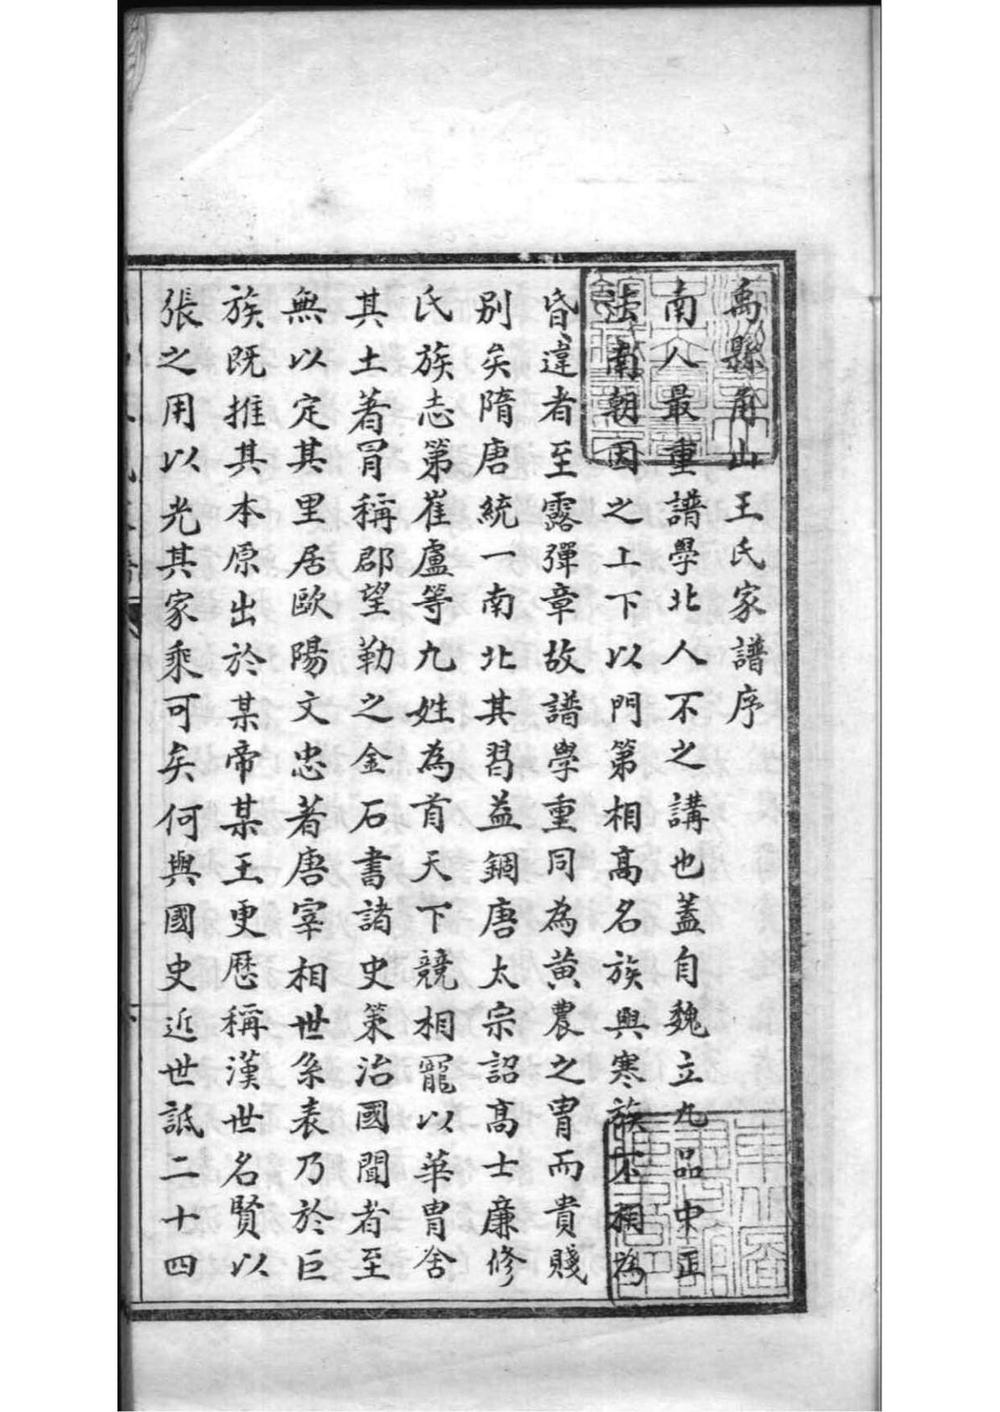 禹縣角山王氏家譜序
南人最重譜學北人不之講也蓋自魏立九品中正
法南朝因之上下以門第相高名族與寒族不相為
昏違者至露彈章故譜學重同為黃農之胄而貴賤
別矣隋唐統一南北其習益錮唐太宗詔高士廉修
氏族志第崔盧等九姓為首天下競相寵以華胄舍
其土著冒稱郡望勒之金石書諸史策治國聞者至
無以定其里居歐陽文忠著唐宰相世系表乃於巨
族既推其本原出於某帝某王更歷稱漢世名賢以
張之用以光其家乘可矣何與國史近世詆二十四